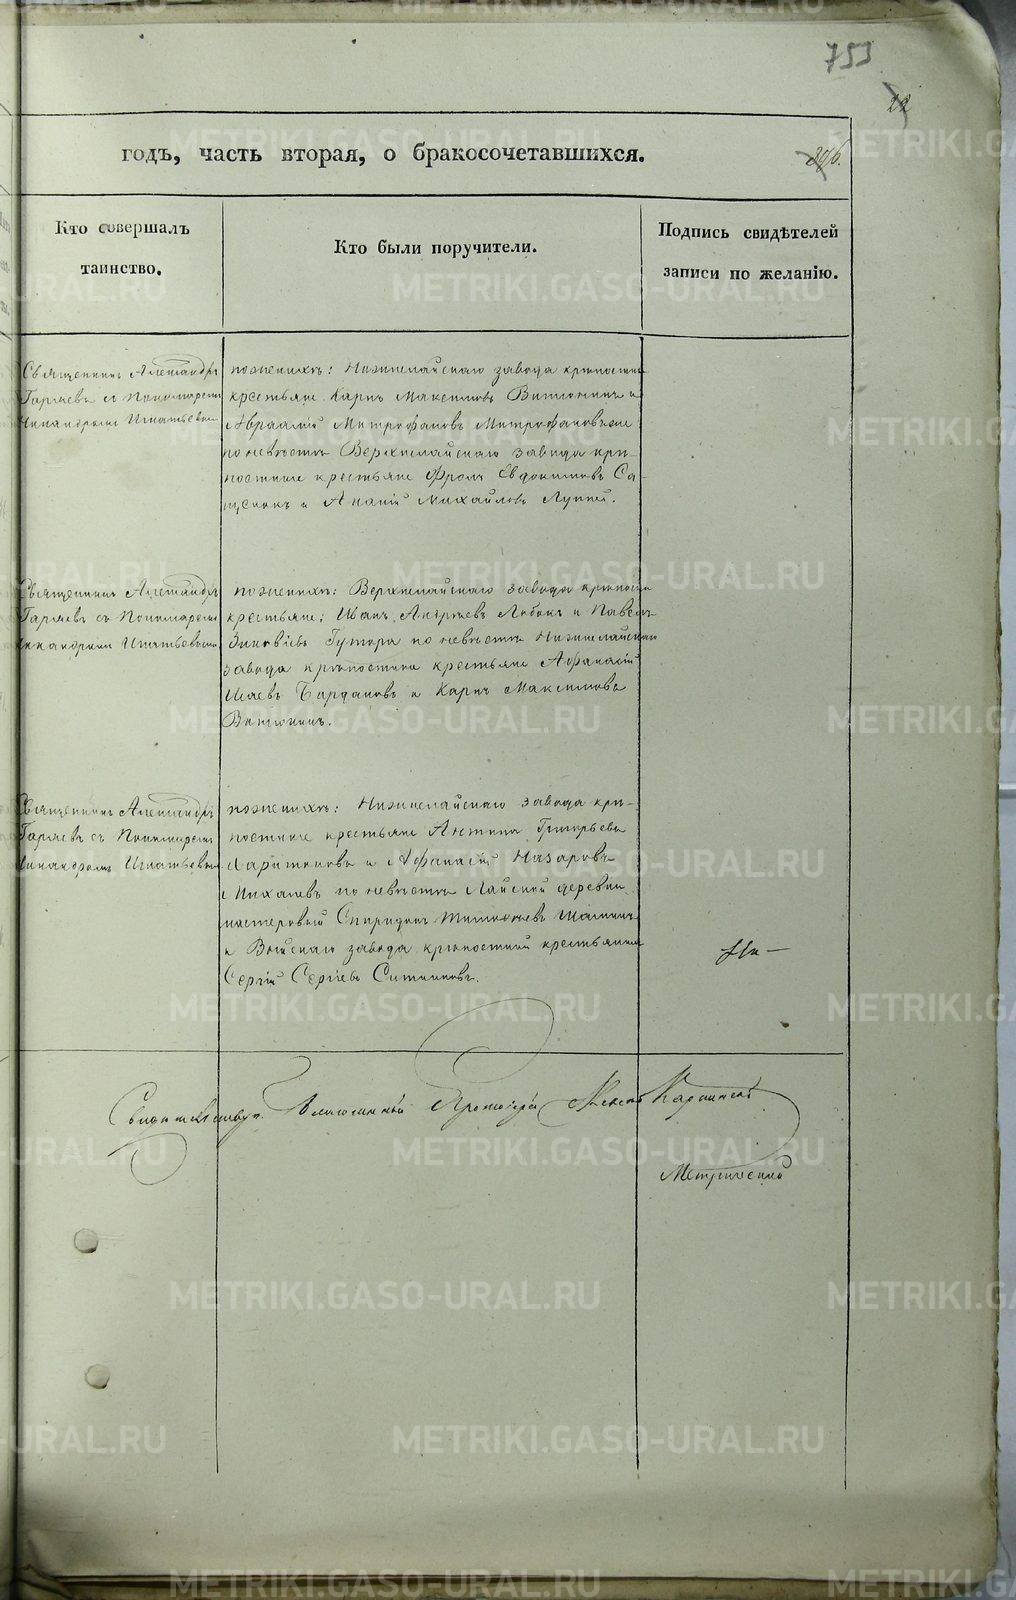 753
22
годъ, часть вторая, о бракосочетавшихся.
Кто совершалъ
таинство.
Кто были поручители.
Подпись свидѣтелей
записи по желанію.
Священникъ Александръ
Гаряевъ и Пономаремъ
Никандромъ Игнатьевымъ
по женихѣ: Нижнелайскаго завода крѣпостные
крестьяне Карпъ Максимовъ Витюнинъ и
Авраамій Митрофановъ
по невѣстѣ Верхнелайскаго завода крѣ-
постные крестьяне Фролъ Евдокимовъ
и Ананій Михайловъ
Священникъ Александръ
Гаряевъ съ Пономаремъ
Никандромъ Игнатьевымъ
по женихѣ: Верхнелайскаго завода крѣпостные
крестьяне: Иванъ Андреевъ Лобокъ и Павелъ
Зиновіевъ Гутора по невѣстѣ Нижнелайскаго
завода крѣпостные крестьяне Афанасій
Исаевъ и Карпъ Максимовъ
Витюнинъ.
Священникъ Александръ
Гаряевъ съ Пономаремъ
Никандромъ Игнатьевымъ
по женихѣ: Нижнелайскаго завода крѣ-
постные крестьяне Антипа Григорьевъ
Харитоновъ и Афанасій Назаровъ
Михалевъ по невѣстѣ Лайской деревни
мастеровый Спиридонъ
и Выйскаго завода крѣпостный крестьянинъ
Сергій Сергѣевъ Ситниковъ.
Свидѣтельствую Благочинный Протоіерей Карпинскій
METRIKI.GASO-URAL.RU